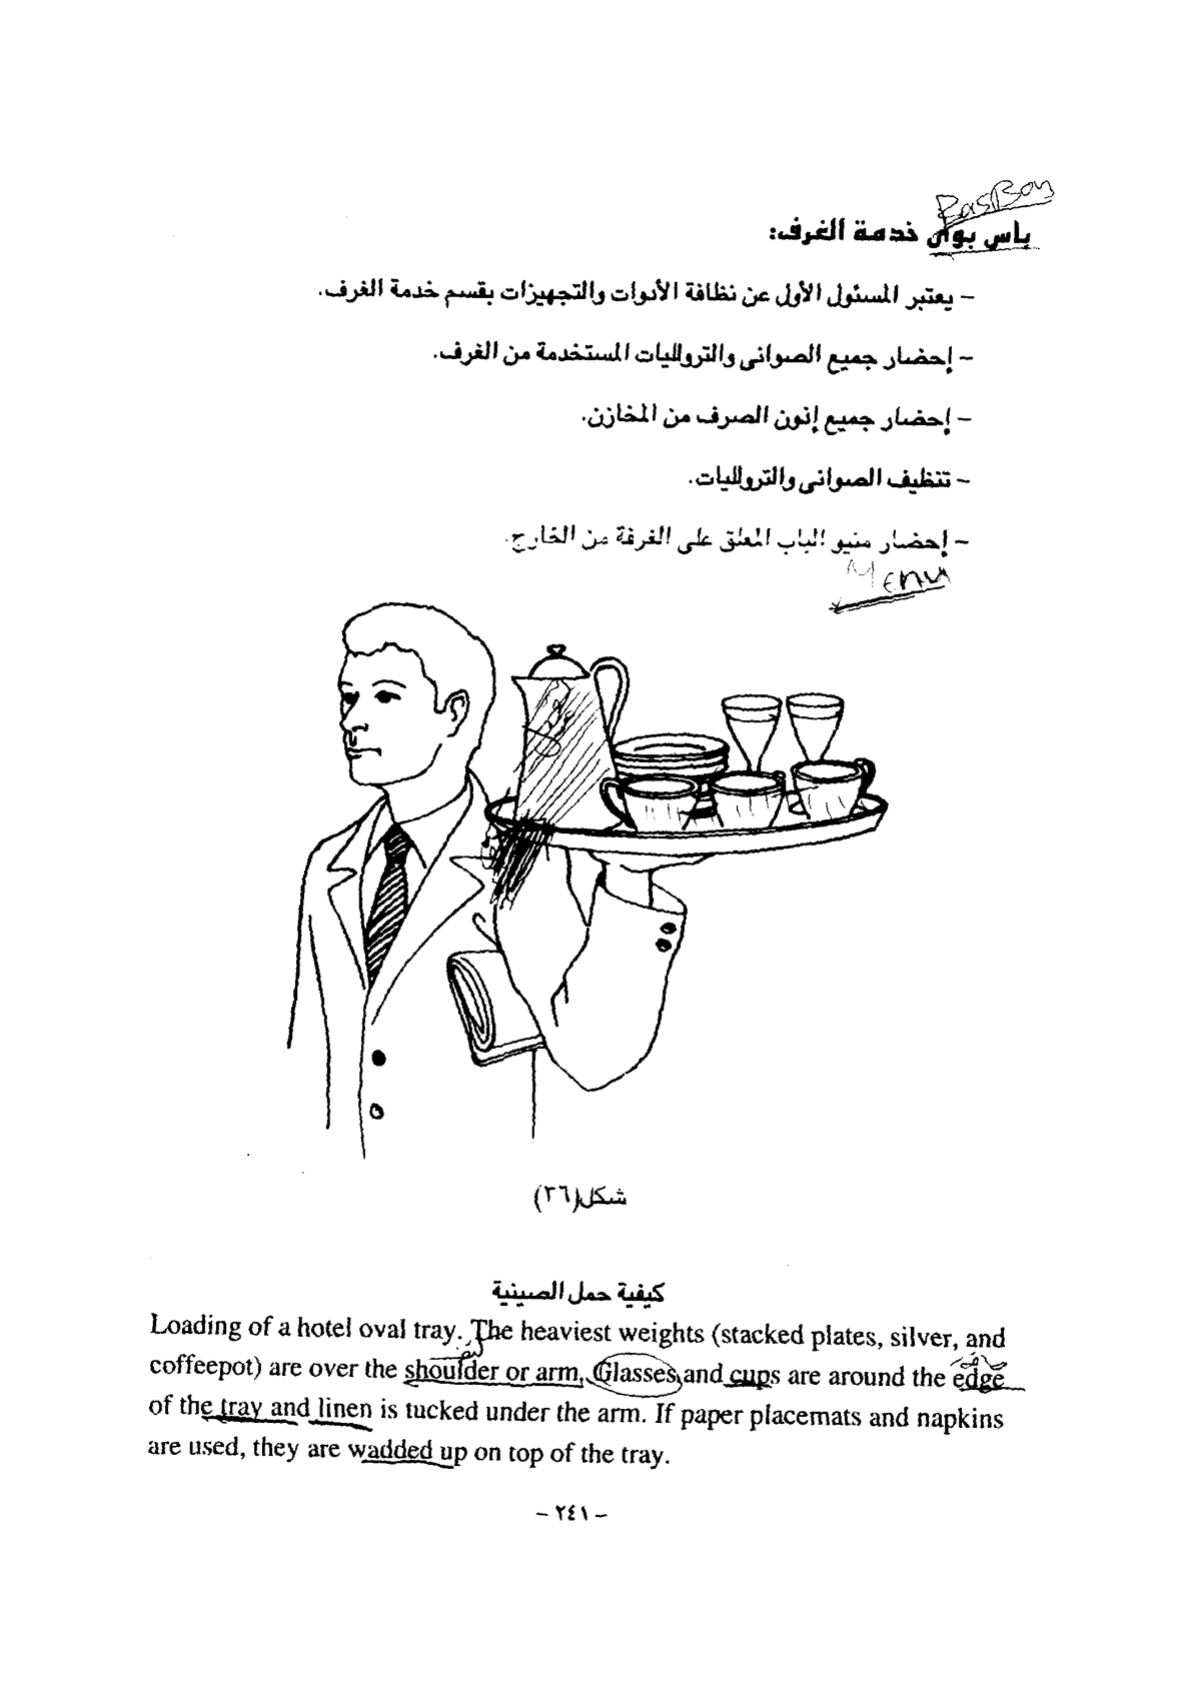 BasBoy
باس بوى خدمة الغرف:
– يعتبر المسئول الأول عن نظافة الأدوات والتجهيزات بقسم خدمة الغرف.
– إحضار جميع الصوانى والترولليات المستخدمة من الغرف.
– إحضار جميع إذون الصرف من المخازن.
– تنظيف الصوانى والترولليات.
– إحضار منيو الباب المعلق على الغرفة من الخارج.
Menu
شكل(٣٦)
كيفية حمل الصينية
Loading of a hotel oval tray. The heaviest weights (stacked plates, silver, and
coffeepot) are over the shoulder or arm, Glasses and cups are around the edge
of the tray and linen is tucked under the arm. If paper placemats and napkins
are used, they are wadded up on top of the tray.
– ٢٤١ –